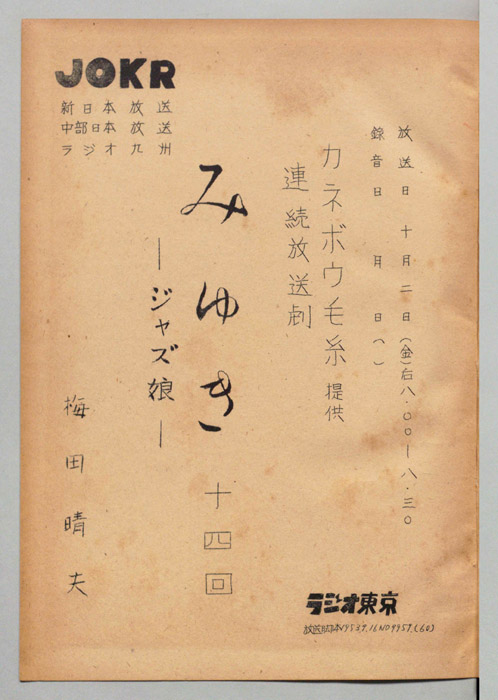 JOKR
新日本放送
中部日本放送
ラジオ九州
放送日 十月二日(金)后八・〇〇―八・三〇
録音日 月 日( )
カネボウ毛糸 提供
連続放送劇
みゆき 十四回
―ジャズ娘―
梅田晴夫
ラジオ東京